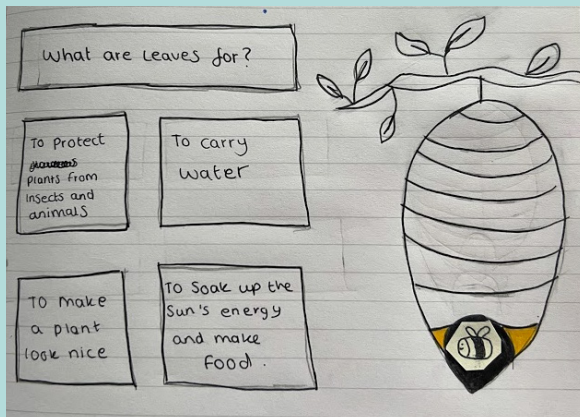 What are leaves for?
To protect
plants from
insects and
animals
To carry
water
To make
a plant
look nice
To Soak up the
Sun's energy
and make
food.